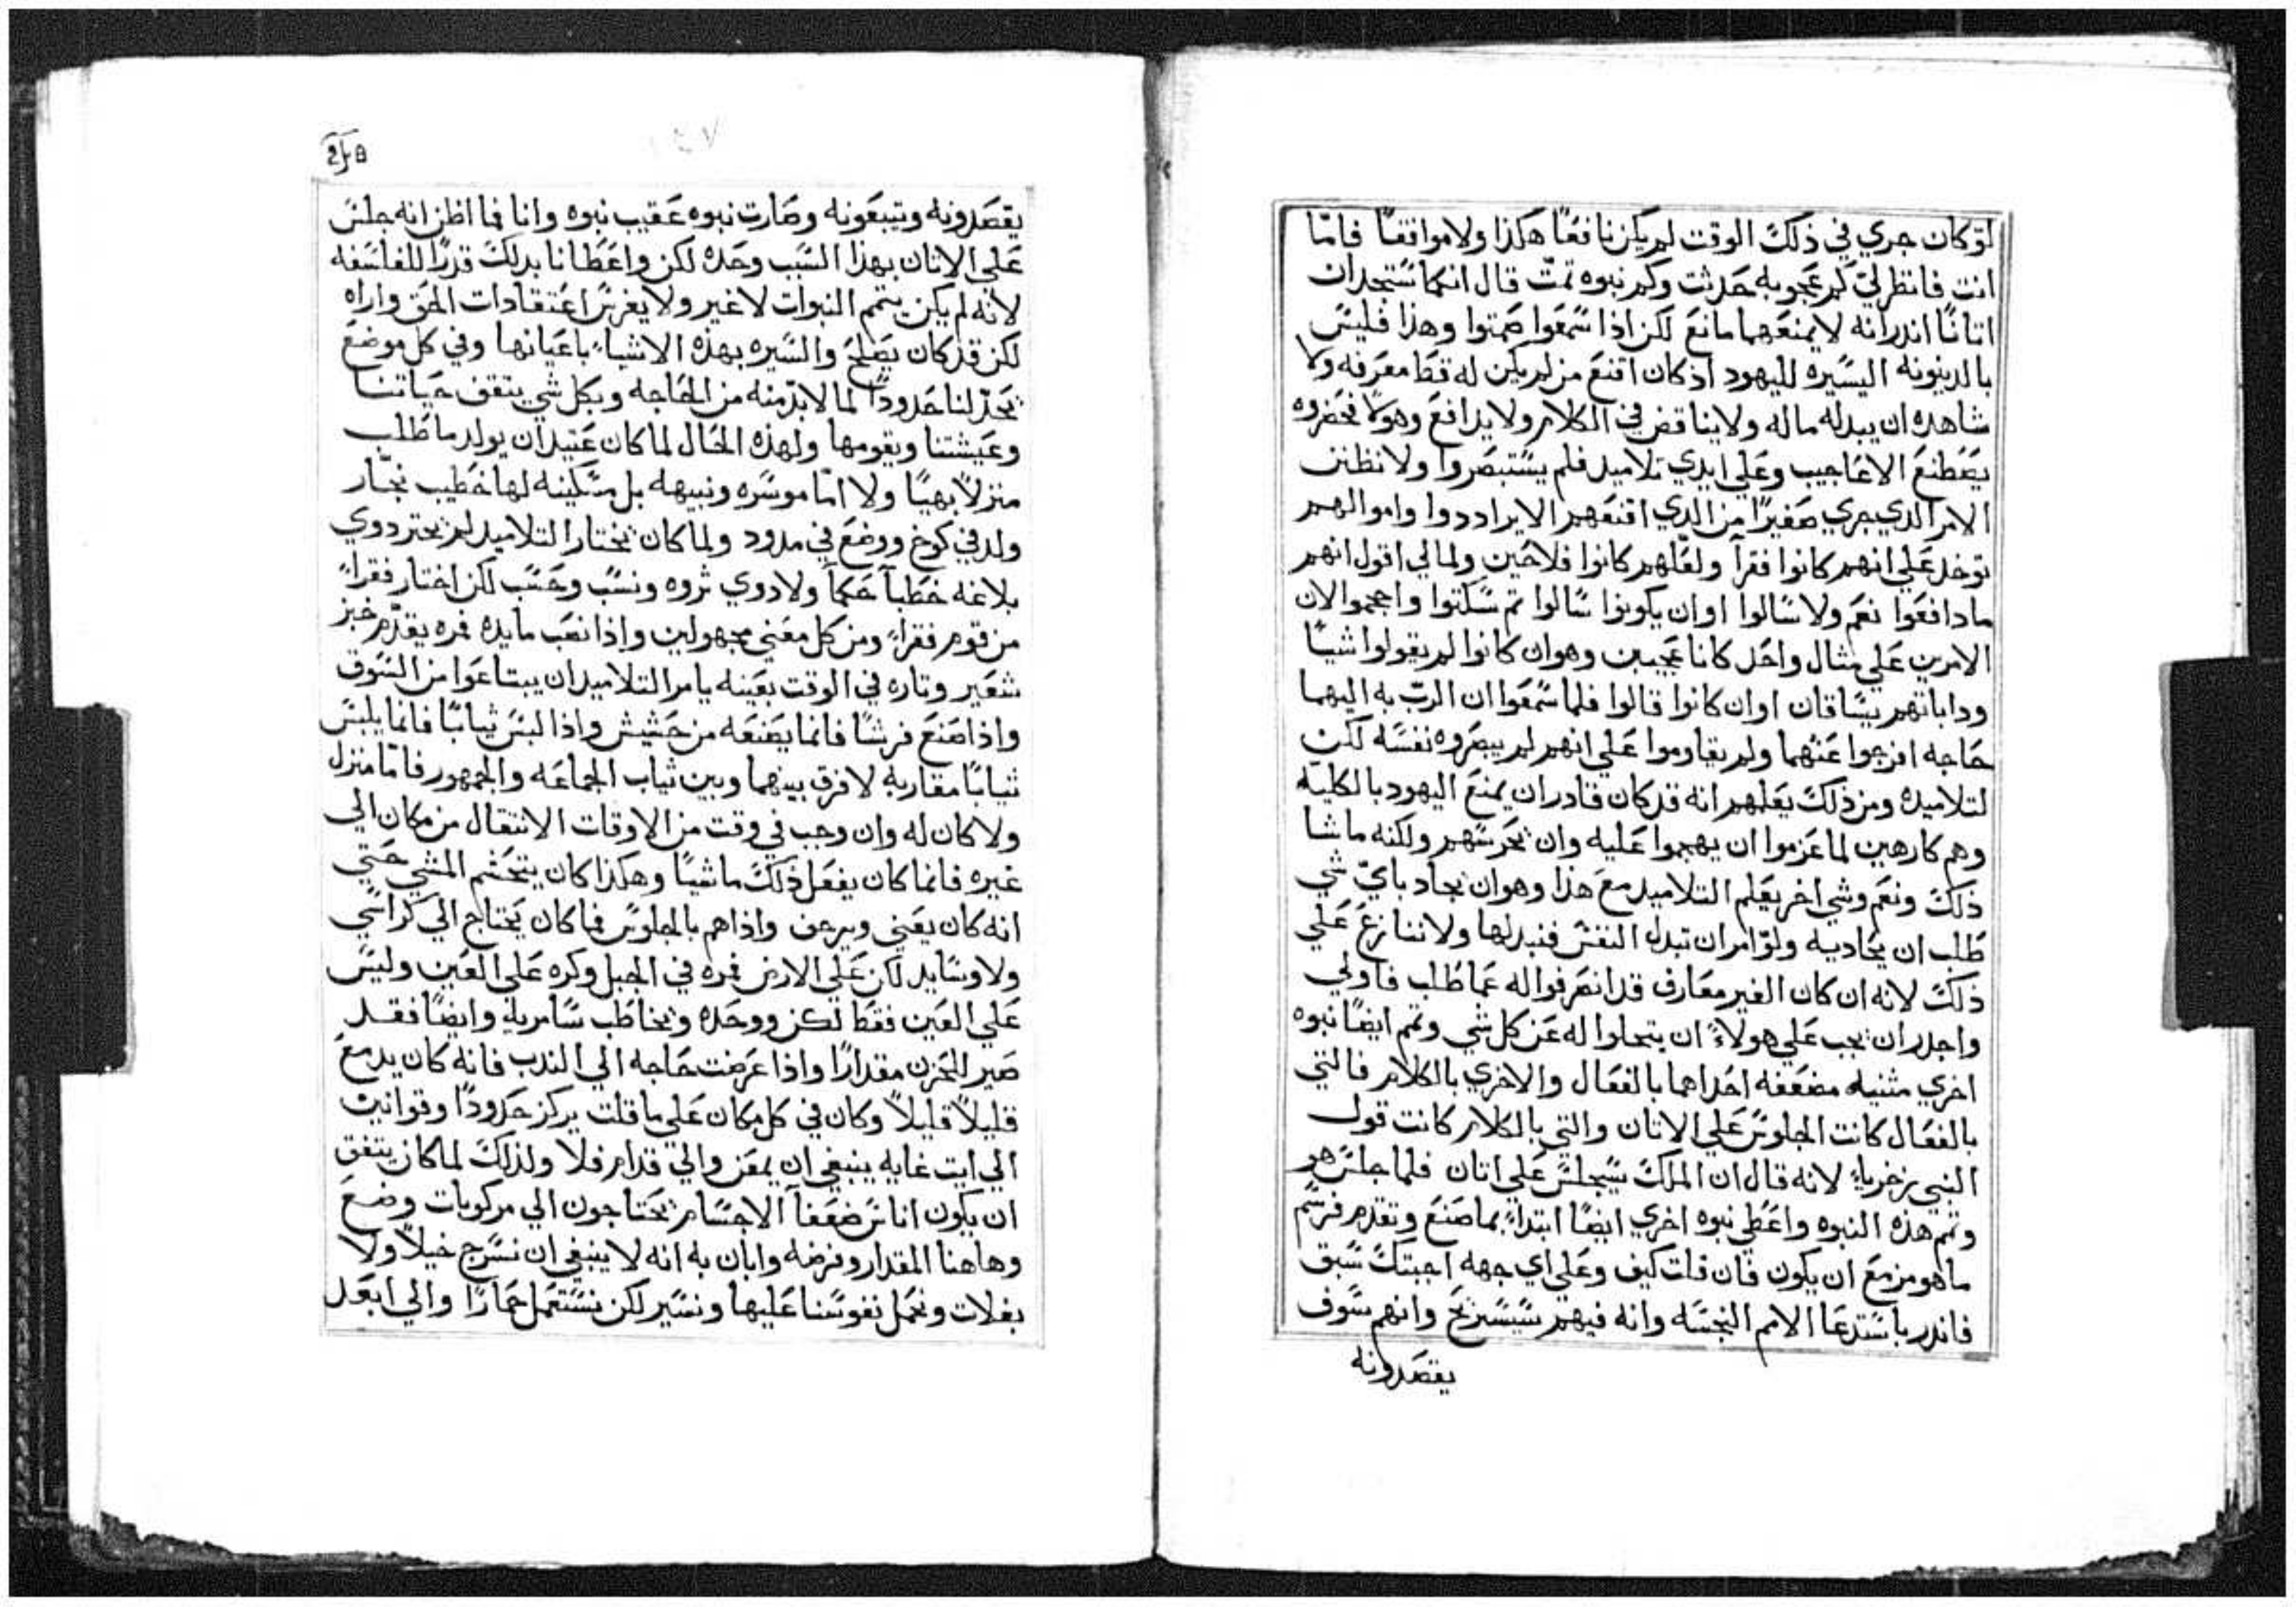 لوّ كان جري في ذلك الوقت لم يكن نافعًا هكذا ولا موافقًا فامّا
انت فانظر لي كم عجوبه حدثت وكم نبوه تمّت قال انكما ستجدان
اتانًا اندرانه لا يمنعهما مانع لكن اذا سمعوا صمتوا وهذا فليس
بالدينونه اليسيره لليهود اذ كان اقنع من لم يكن له قط معرفه ولا
شاهده ان يبدله ماله ولا يناقض في الكلام ولا يدافع وهولا فحضروه
يصطنع الاعاجيب وعلي ايدي تلاميد فلم يستبصروا ولا نظنن
الامر الدي جري صغيرًا من الدي اقنعهم الا يراددوا واموالهم
توخد علي انهم كانوا فقرآ ولعّلهم كانوا فلاحين ولمالي اقول انهم
مادافعوا نعم ولا سالوا اوان يكونوا سالوا ثم سكتوا واحجموا لان
الامرين علي مثال واحد كانا عجيبين وهوان كانوا لم يقولوا شيئًا
وداباتهم يساقان اوان كانوا قالوا فلما سمعوا ان الربّ به اليهما
حاجه افرجوا عنهما ولم يقاوموا علي انهم لم يبصروه نفسه لكن
لتلاميده ومن ذلك يعلمهم انه قد كان قادران يمنع اليهود بالكليه
وهم كارهين لما عزموا ان يهجموا عليه وان يخرسهم ولكنه ماشا
ذلك ونعم وشي اخر يعلم التلاميد مع هذا وهوان يجاد بايّ شي
طلب ان يجاديه ولوّ امران تبدل النفس فنبدلها ولا ننازع علي
ذلك لانه ان كان الغير معارف قد انصرفواله عما طلب فاولي
واجدران يجب علي هولاءِ ان يتحلوا له عن كل شي وتمم ايضًا نبوه
اخري مثنيه مضعفه احداهما بالفعال والاخري بالكلام فالتي
بالفعال كانت الجلوس علي الاتان والتي بالكلام كانت قول
النبي زخرياءِ لانه قال ان الملك سيجلس علي اتان فلما جلس هو
وتمم هذه النبوه واعطي نبوه اخري ايضًا ابتداءً بما صنع وتقدم فرسم
ماهو مزمع ان يكون فان قلت كيف وعلي اي جهه اجبتك سبق
فاندر باستدعا الامم النجسه وانه فيهم سيستريح وانهم سوف
يقصدونه
يقصدونه ويتبعونه وصارت نبوه عقيب نبوه وانا فما اظن انه جلس
علي الاتان بهذا السبب وحده لكن واعطانا بدلك قدرًا للفلسفه
لانه لم يكن يتمم النبوات لا غير ولا يغرس اعتقادات الحق واراه
لكن قد كان يصلح والسيره بهذه الاشياءِ باعيانها وفي كل موضع
يحدّ لنا حدودًا لما لابدّ منه من الحاجه وبكل شي يثقف حياتنا
وعيشتنا ويقومها ولهذه الحال لما كان عتيدان يولد ما طلب
منزلاً بهيًا ولا امّا موسره ونبيهه بل مسكينه لها خطيب نجّار
ولد في كوخ ووضع في مدود ولما كان يختار التلاميد لم يختر دوي
بلاغه خطبآ حكمآ ولا دوي ثروه ونسب وحسب لكن اختار فقراءً
من قوم فقراءِ ومن كل معني مجهولين واذا نصب مايده فمره يقدّم خبز
شعير وتاره في الوقت بعينه يامر التلاميدان يبتاعوا من السوق
واذا صنع فرشًا فانما يصنعه من حشيش واذا لبس ثيابًا فانما يلبس
ثيابًا مقاربه لا فرق بينهما وبين ثياب الجماعه والجمهور فامّا منزل
ولا كان له وان وجب في وقت من الاوقات الانتقال من مكان الي
غيره فانما كان يفعل ذلك ماشيًا وهكذا كان يتجشم المشي حتي
انه كان يعني ويرجف واذا هم بالجلوس فما كان يحتاج الي كراسي
ولا وسايد لكن علي الارض فمره في الجبل وكره علي العين وليس
علي العين فقط لكن ووحده ويخاطب سامريه وايضًا فقد
صير للحزن مقدارًا واذا عرضت حاجه الي الندب فانه كان يدمع
قليلاً قليلاً وكان في كل مكان علي ما قلت يركز حدودًا وقوانين
الي ايت غايه ينبغي ان يمعن والي قدام فلا ولذلك لما كان يتفق
ان يكون اناس ضعفآ الاجسام يحتاجون الي مركوبات وضع
وهاهنا المقدار وفرضه وابان به انه لا ينبغي ان نسرج خيلاً ولا
بغلات ونحمل نفوسنا عليها ونسير لكن نستعمل حمارًا والي ابعد